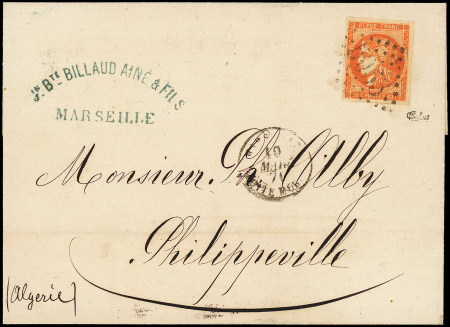 Jn Bte BILLAUD AINÉ & FILS
MARSEILLE
REPUB FRANC
19
MAI
71
Monsieur Ph Alby
Philippeville
(Algerie)